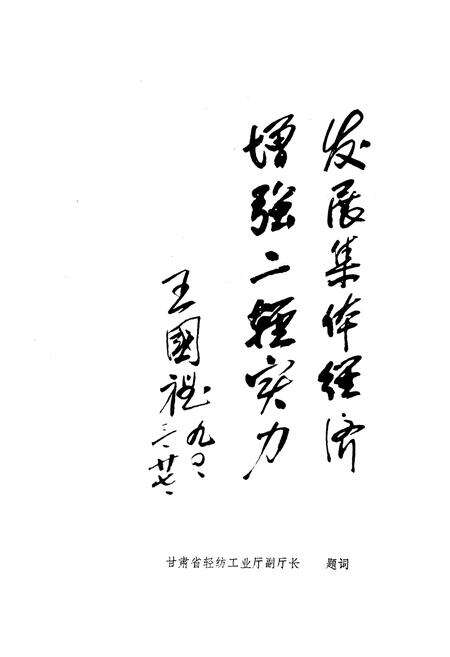 发展集体經济
增强二輕实力
王國
九〇、
三、廿七、
甘肃省轻纺工业厅副厅长 题词